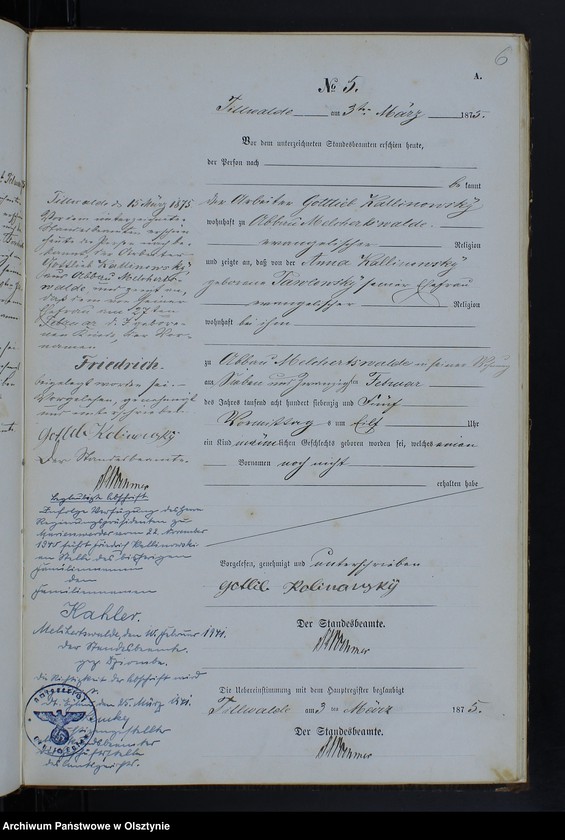 6
A.
No 5.
Tillwalde am 3ten März 1875.
Vor dem unterzeichneten Standesbeamten erschien heute,
der Person nach
be kannt
der Arbeiter Gottlieb Kallinowsky
wohnhaft zu Abbau Melchertswalde
evangelischer Religion
und zeigte an, daß von der Anna Kallinowsky
geborene Pawlowsky seiner Ehefrau
evangelischer Religion
wohnhaft bei ihm
zu Abbau Melchertswalde in seiner Wohnung
am Sieben und Zwanzigsten Februar
des Jahres tausend acht hundert siebenzig und Fünf
Vormittag s um Eilf Uhr
ein Kind männlichen Geschlechts geboren worden sei, welches einen
Vornamen noch nicht
erhalten habe
Vorgelesen, genehmigt und unterschrieben
Gotlib Kolinawsky
Der Standesbeamte.
Die Uebereinstimmung mit dem Hauptregister beglaubigt
Tillwalde am 3ten März 1875.
Der Standesbeamte.
Tillwalde den 15 März 1875
Vor dem unterzeichneten
Standesbeamten erschien
heute die Person nach be-
kannt, der Arbeiter
Gottlieb Kallinowsky
aus Abbau Melcherts-
walde und zeigte an,
daß dem von seiner
Ehefrau am 27ten
Februar d. J. gebore-
nen Kinde, der Vor-
namen
Friedrich
beigelegt worden sei.
Vorgelesen, genehmigt
und unterschrieben
Gottlib Koliwosky
Der Standesbeamte.
beglaubigte Abschrift
Infolge Verfügung des Herrn
Regierungspräsidenten zu
Marienwerder vom 22. November
führt Friedrich Kallinowski
an Stelle des bisherigen
Familiennamens
den
Familiennamen
Kahler.
Melchertswalde, den 10. Februar 1941.
der Standesbeamte
gez.
die Richtigkeit der Abschrift wird
den 25. März 1941.
Archiwum Państwowe w Olsztynie